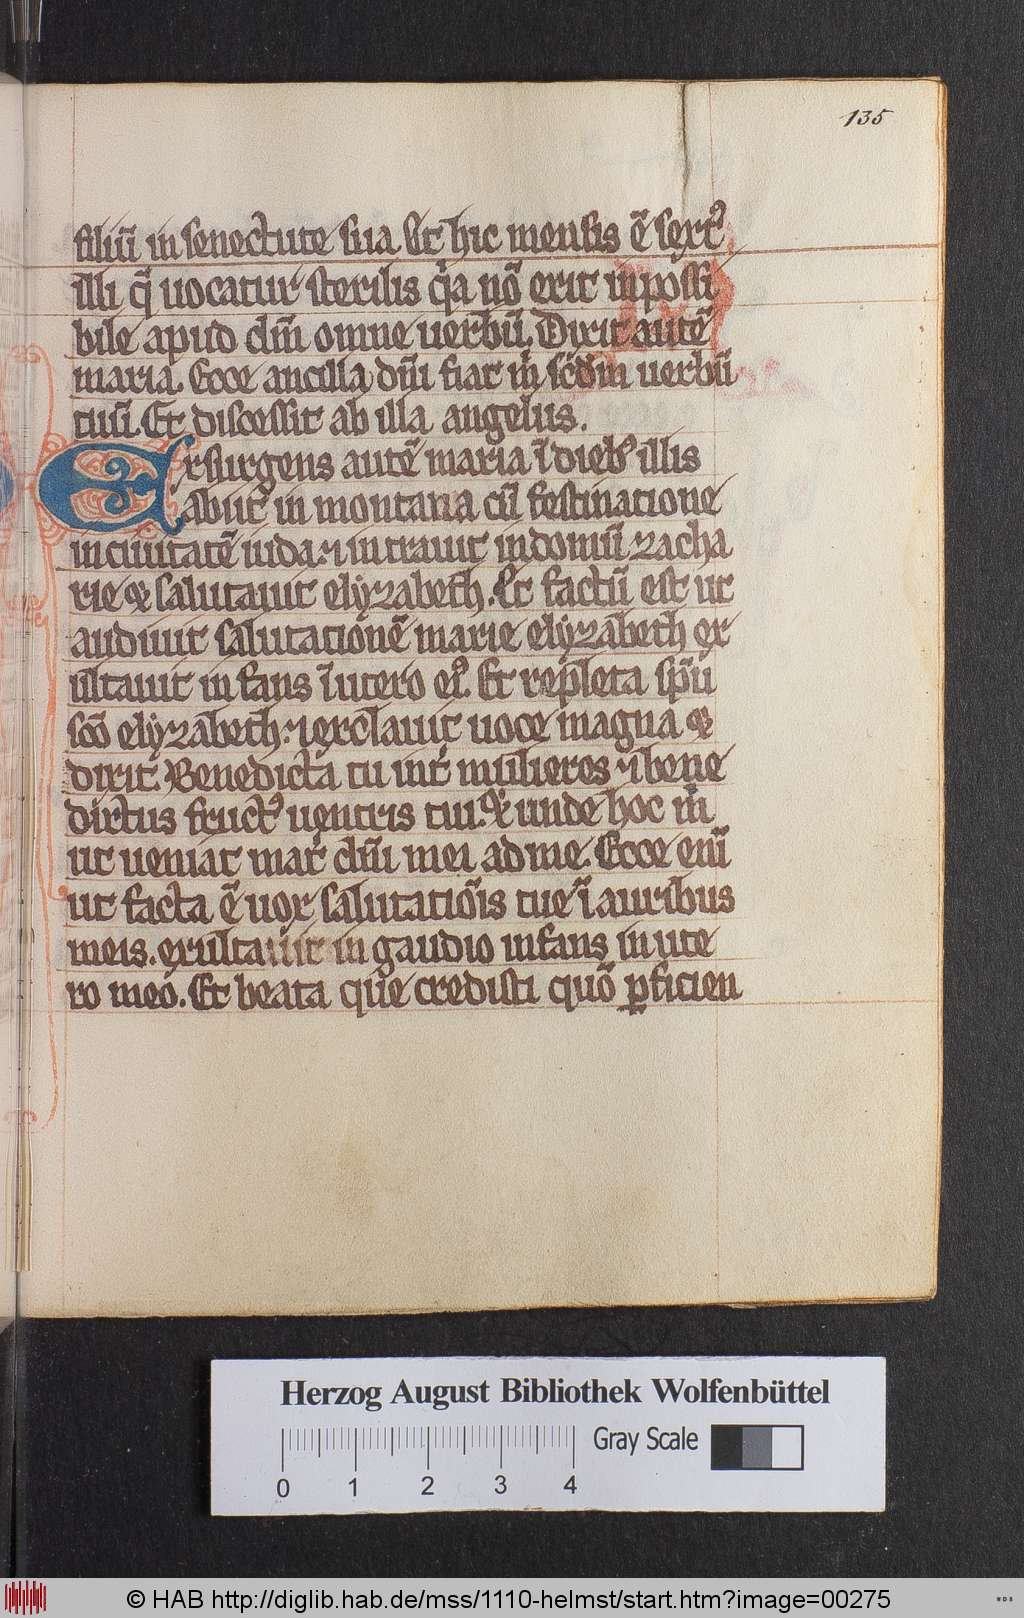 135
filiū in senectute sua. Et hic mensis ē sext᷒
illi q̄ uocatur sterilis q̍a nō erit inpossi
bile apud dm̄ omne uerbū. Dixit autē
maria. Ecce ancilla dn̄i fiat m̍ scd̄m uerbū
tuū. Et discessit ab illa angelus.
Exsurgens autē maria ī dieb᷒ illis
abiit in montana cū festinatione
in ciuitatē iuda. ⁊ intrauit in domū zacha
rie ⁊ salutauit elyzabeth. Et factū est ut
audiuit salutationē marie elyzabeth ex
ultauit infans ī utero ei᷒. Et repleta sp̄u
sc̄o elyzabeth. ⁊ exclauit uoce magna ⁊
dixit. Benedicta tu int̄ mulieres ⁊ bene
dictus fruct᷒ uentris tui. ⁊ unde hoc m̍
ut ueniat mat̄ dn̄i mei ad me. Ecce enī
ut facta ē uox salutatiōis tue ī auribus
meis. exultauit in gaudio infans in ute
ro meo. Et beata que credisti quō ꝑficien
Herzog August Bibliothek Wolfenbüttel
Gray Scale
0 1 2 3 4
© HAB http://diglib.hab.de/mss/1110-helmst/start.htm?image=00275